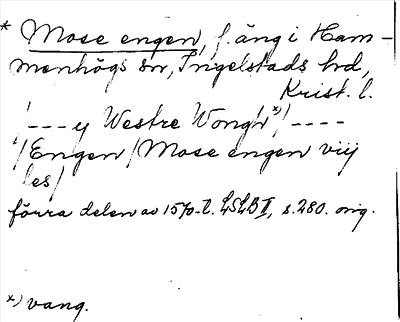 * Mose engen, f. äng i Ham-
menhögs sn, Ingelstads hd,
Krist. l.
/---y Westre Wongh x)/----
/Engen/Mose engen viij
les/
förra delen av 1570-t. LSLB II, s. 280. orig.
x) vang.